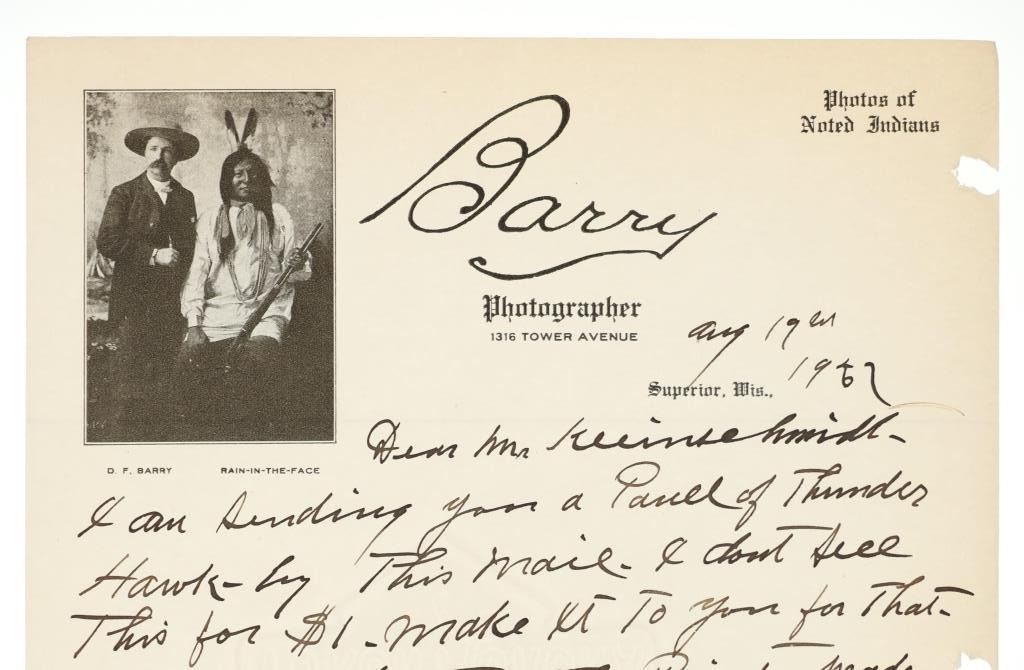 Photos of
Noted Indians
Barry
Photographer
1316 TOWER AVENUE
Aug 19
Superior, Wis.,
D. F. BARRY RAIN-IN-THE-FACE
Dear Mr Kleinschmidt-
I am sending you a Panell of Thunder
Hawk- by This mail- I dont sell
This for $1- make It To you for That-